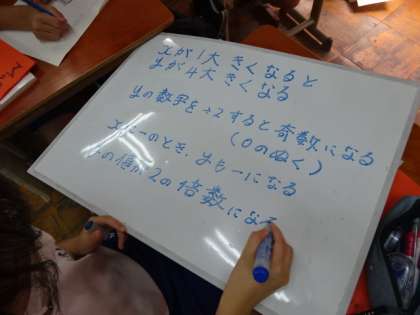 xが1大きくなると
yが4大きくなる
yの数字を÷2すると奇数になる
(0のぬく)
xが−のとき、yも−になる
yの値が2の倍数になる